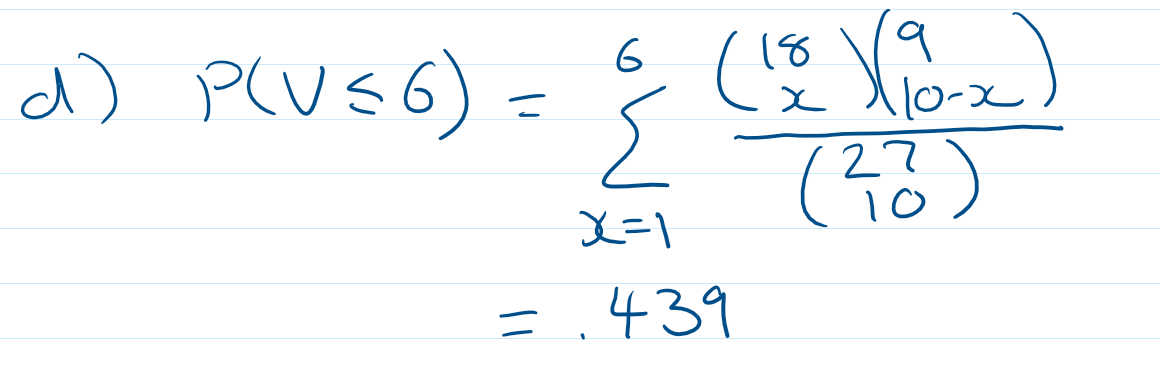 d) P(V ≤ 6) = 6 ∑ x=1 (18 x)(9 10-x) / (27 10)
= .439